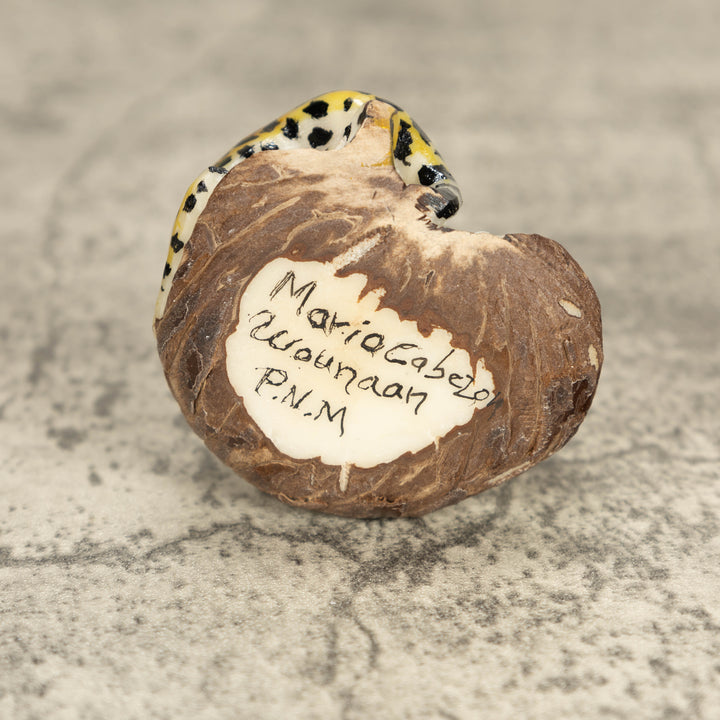 Maria Cabezo
Wounaan
P.N.M